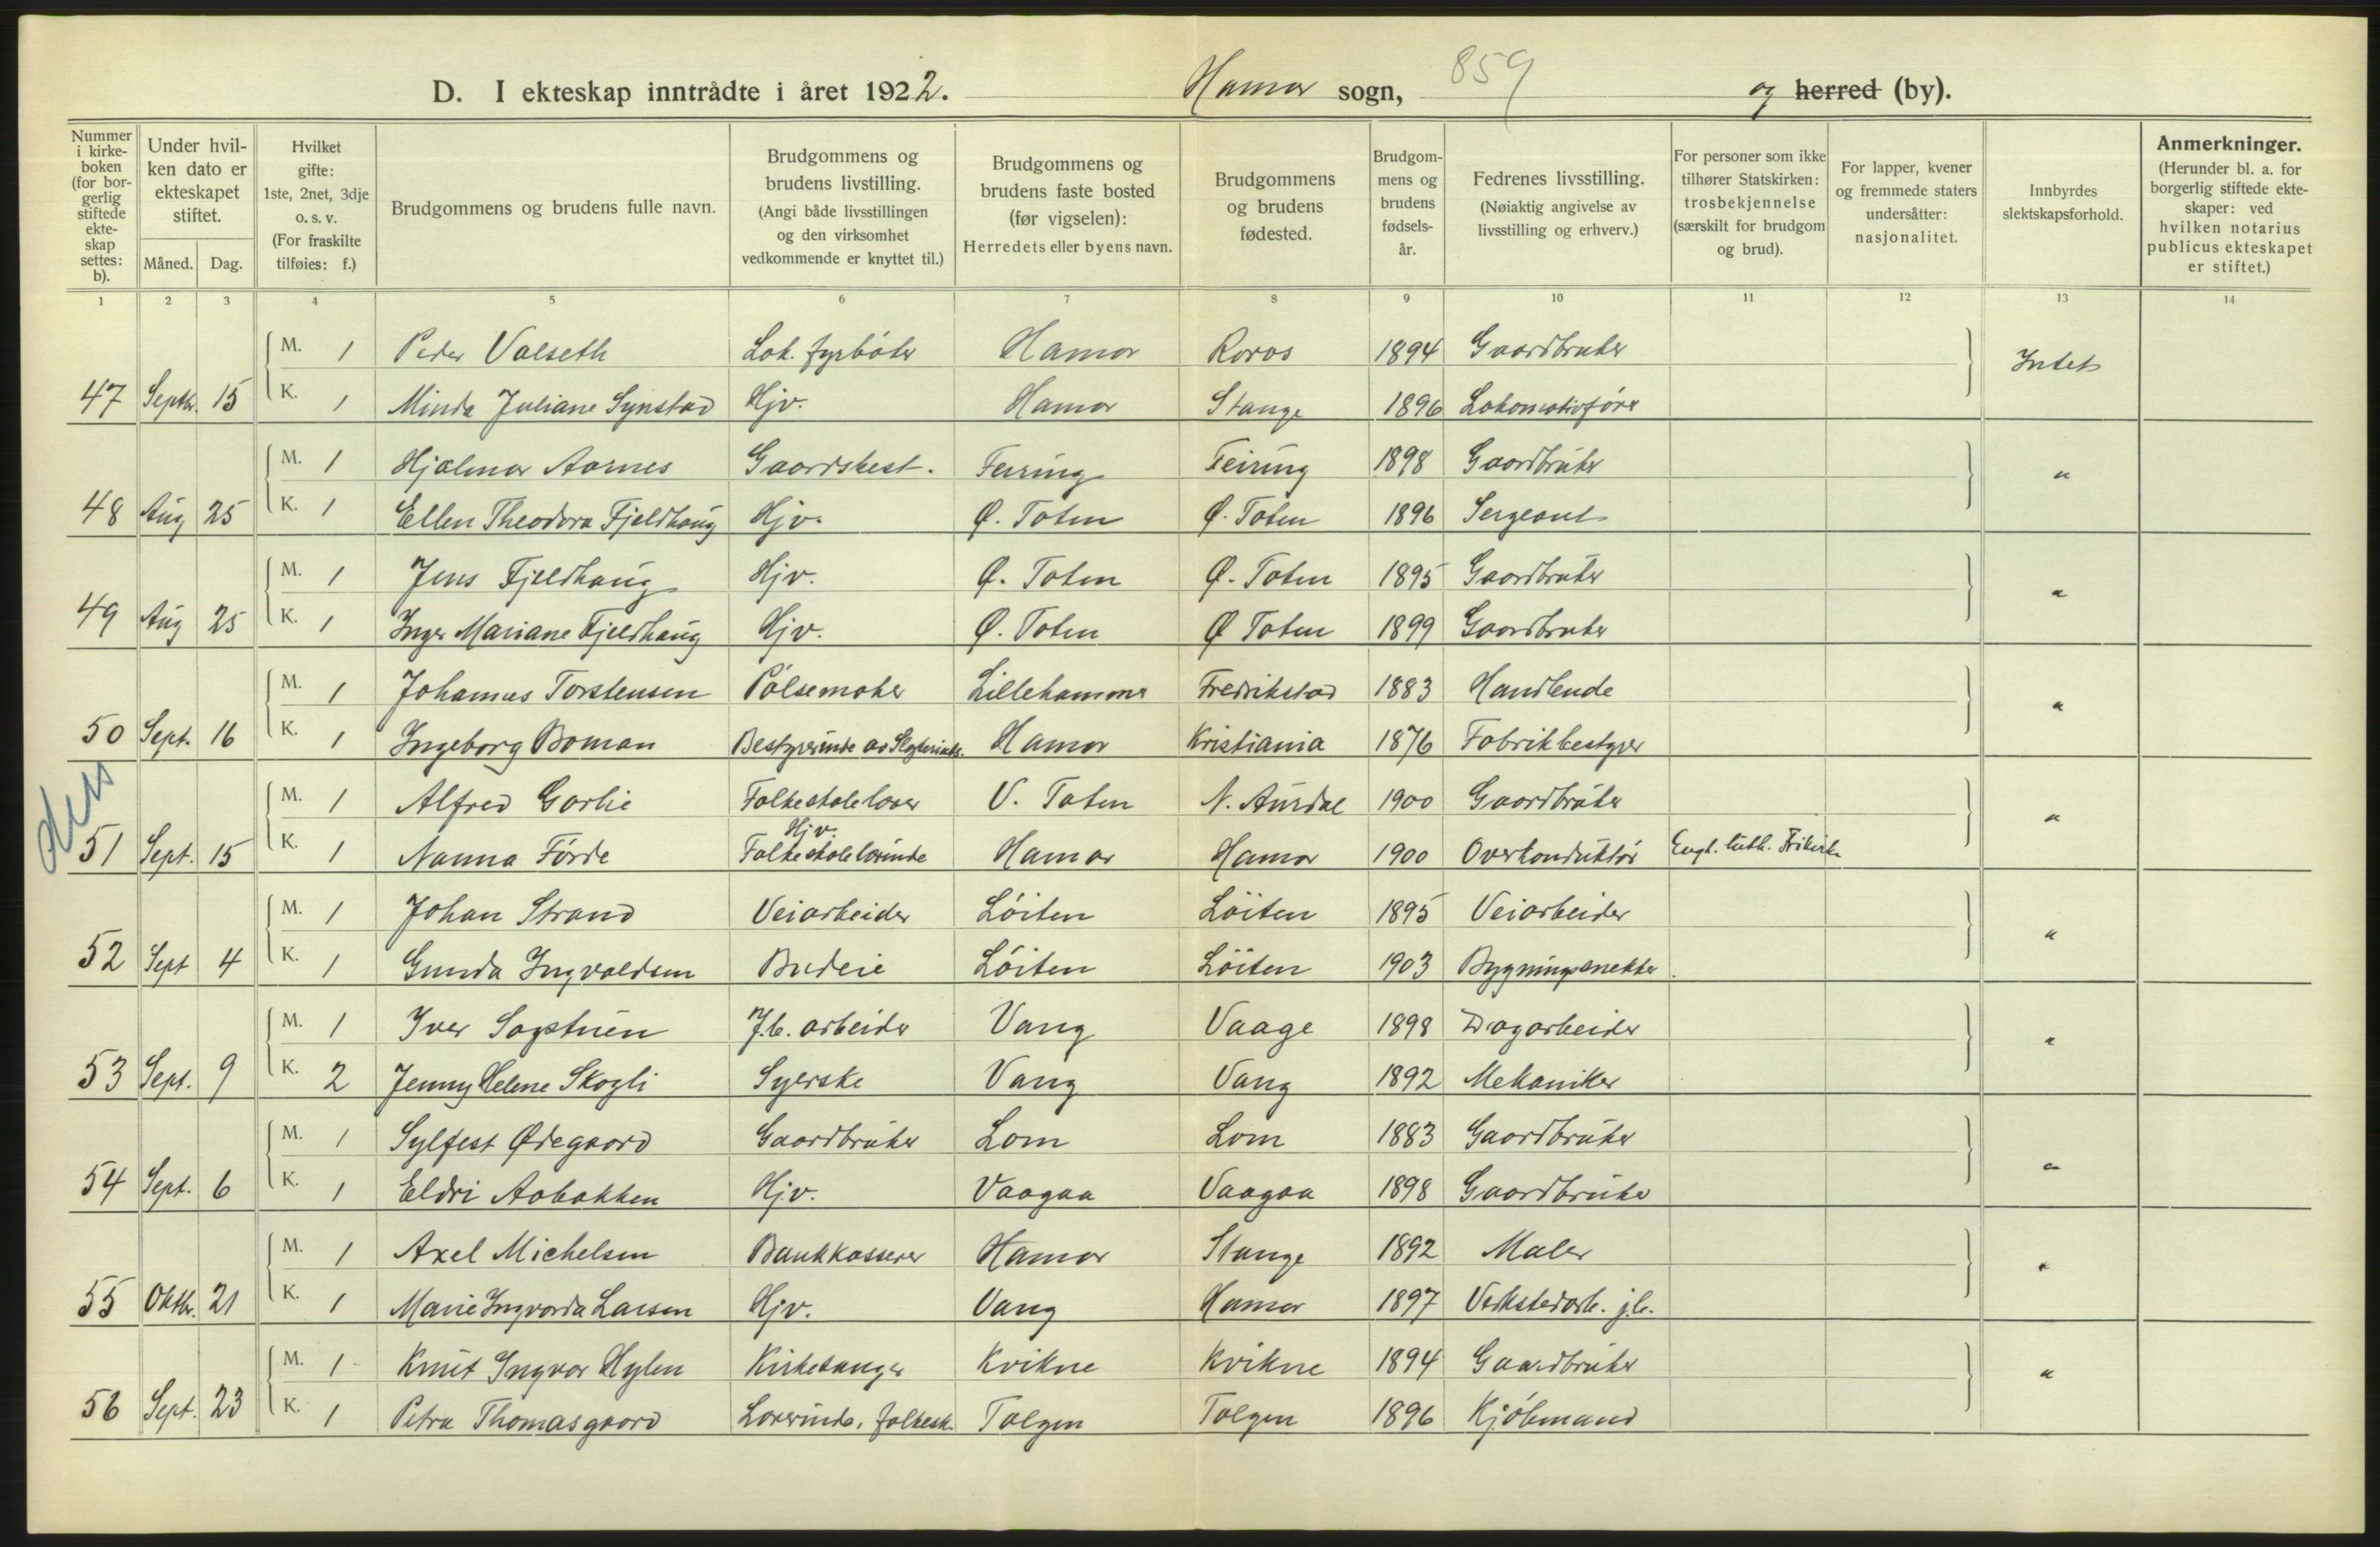 859
D. I ekteskap inntrådte i året 1922. Hamar sogn, og herred (by).
Nummer i kirkeboken (for borgerlig stiftede ekteskap settes: b).
Under hvilken dato er ekteskapet stiftet.
Måned. Dag.
Hvilket gifte: 1ste, 2net, 3dje o. s. v. (For fraskilte tilføies: f.)
Brudgommens og brudens fulle navn.
Brudgommens og brudens livstilling. (Angi både livsstillingen og den virksomhet vedkommende er knyttet til.)
Brudgommens og brudens faste bosted (før vigselen): Herredets eller byens navn.
Brudgommens og brudens fødested.
Brudgommens og brudens fødselsår.
Fedrenes livsstilling. (Nøiaktig angivelse av livsstilling og erhverv.)
For personer som ikke tilhører Statskirken: trosbekjennelse (særskilt for brudgom og brud).
For lapper, kvener og fremmede staters undersåtter: nasjonalitet.
Innbyrdes slektskapsforhold.
Anmerkninger. (Herunder bl. a. for borgerlig stiftede ekteskaper: ved hvilken notarius publicus ekteskapet er stiftet.)
1 2 3 4 5 6 7 8 9 10 11 12 13 14
M. 1 Peder Valseth Lok. fyrbøter Hamar Røros 1894 Gaardbruker Intet
47 Septbr. 15 K. 1 Minda Juliane Synstad Hjv. Hamar Stange 1896 Lokomotivfører
M. 1 Hjalmar Aarnes Gaardsbest. Feiring Feiring 1898 Gaardbruker "
48 Aug 25 K. 1 Ellen Theodora Fjeldhaug Hjv. Ø. Toten Ø. Toten 1896 Sergeant
M. 1 Jens Fjeldhaug Hjv. Ø. Toten Ø. Toten 1895 Gaardbruker "
49 Aug 25 K. 1 Inger Mariane Fjeldhaug Hjv. Ø. Toten Ø Toten 1899 Gaardbruker
M. 1 Johannes Torstensen Pølsemaker Lillehammer Fredrikstad 1883 Handlende "
50 Sept. 16 K. 1 Ingeborg Boman Bestyrerinde av Hamar Kristiania 1876 Fabrikbestyrer
M. 1 Alfred Garlie Folkeskolelærer V. Toten N. Aurdal 1900 Gaardbruker "
Hjv.
51 Sept. 15 K. 1 Nanna Førde Folkeskolelærinde Hamar Hamar 1900 Overkonduktør Evgl. luth. Frikirke
M. 1 Johan Strand Veiarbeider Løiten Løiten 1895 Veiarbeider "
52 Sept 4 K. 1 Gunda Ingvaldsen Budeie Løiten Løiten 1903 Bygningssnekker
M. 1 Iver Sagstuen J.b. arbeider Vang Vaage 1898 Dagarbeider "
53 Sept. 9 K. 2 Jenny Helene Skogli Syerske Vang Vang 1892 Mekaniker
M. 1 Sylfest Ødegaard Gaardbruker Lom Lom 1883 Gaardbruker "
54 Sept. 6 K. 1 Eldri Aabakken Hjv. Vaagaa Vaagaa 1898 Gaardbruker
M. 1 Axel Michelsen Bankkasserer Hamar Stange 1892 Maler "
55 Oktbr. 21 K. 1 Marie Ingvarda Larsen Hjv. Vang Hamar 1897 Verkstedarb. j.b.
M. 1 Knut Ingvar Hylen Kirkesanger Kvikne Kvikne 1894 Gaardbruker "
56 Sept. 23 K. 1 Petra Thomasgaard Lærerinde, folkesk. Tolgen Tolgen 1896 Kjøbmand